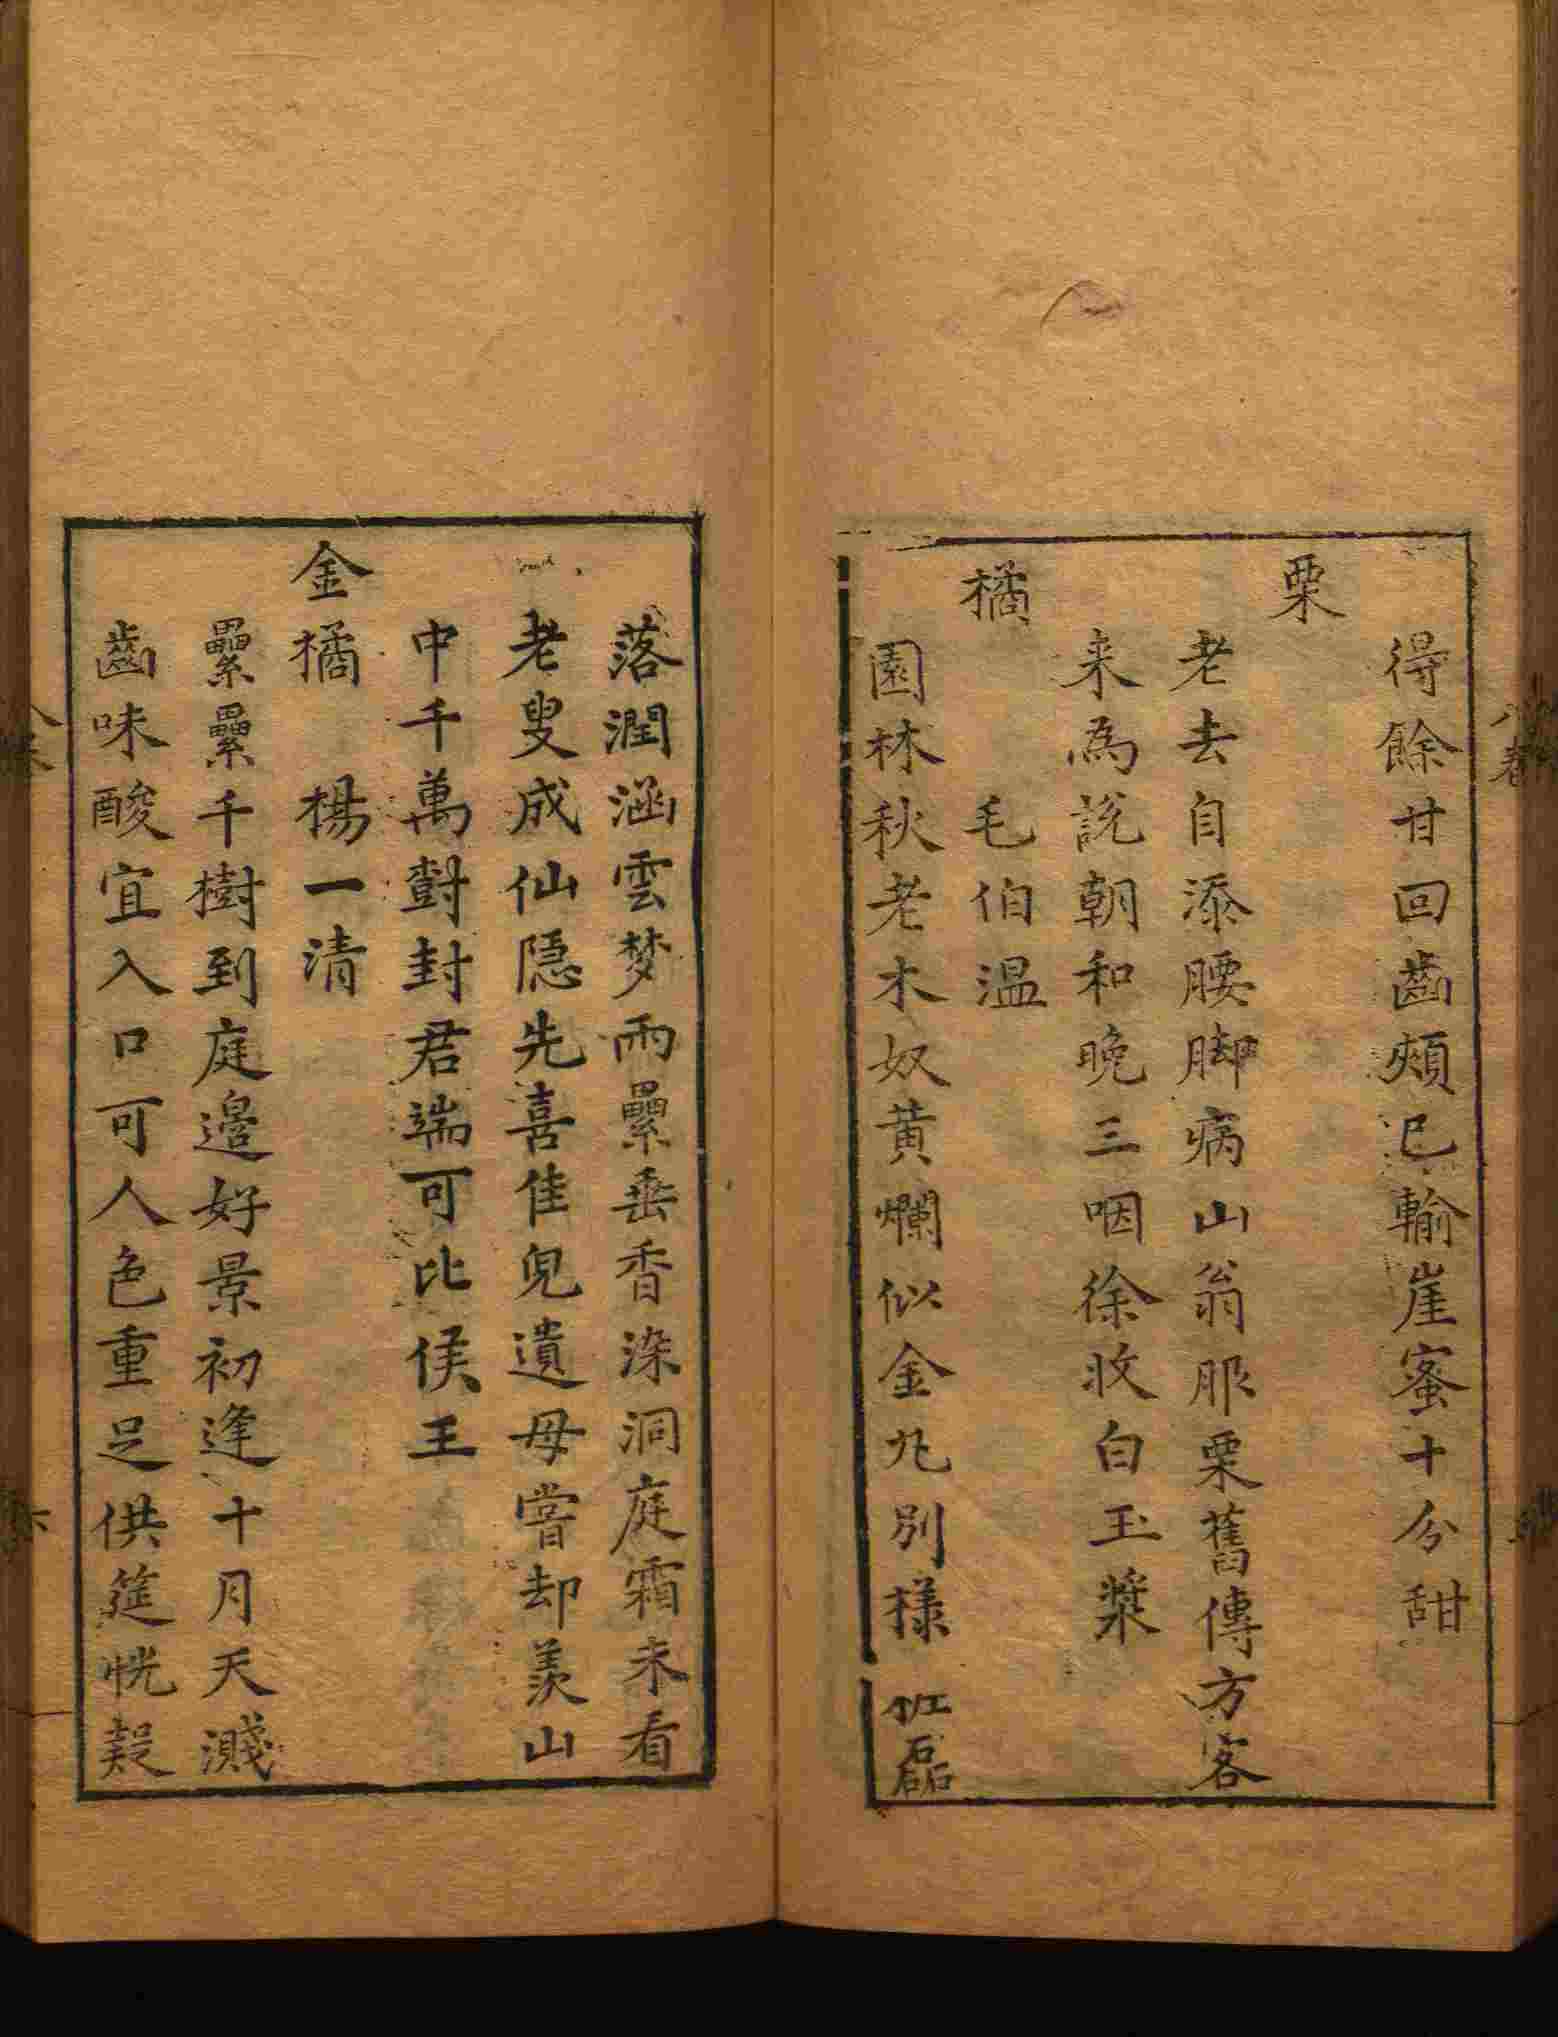 得餘甘回齒頰已輸崖蜜十分甜
栗
老去自添腰脚病山翁服栗舊傳方客
来為説朝和晚三咽徐收白玉漿
橘　毛伯温
園林秋老木奴黄爛似金丸别樣粧磊
落潤涵雲梦雨纍垂香染洞庭霜未看
老叟成仙隱先喜佳兒遺母嘗却羡山
中千萬樹封君端可比侯王
金橘　楊一清
纍纍千樹到庭邉好景初逢十月天濺
齒味酸宜入口可人色重足供筵恍疑